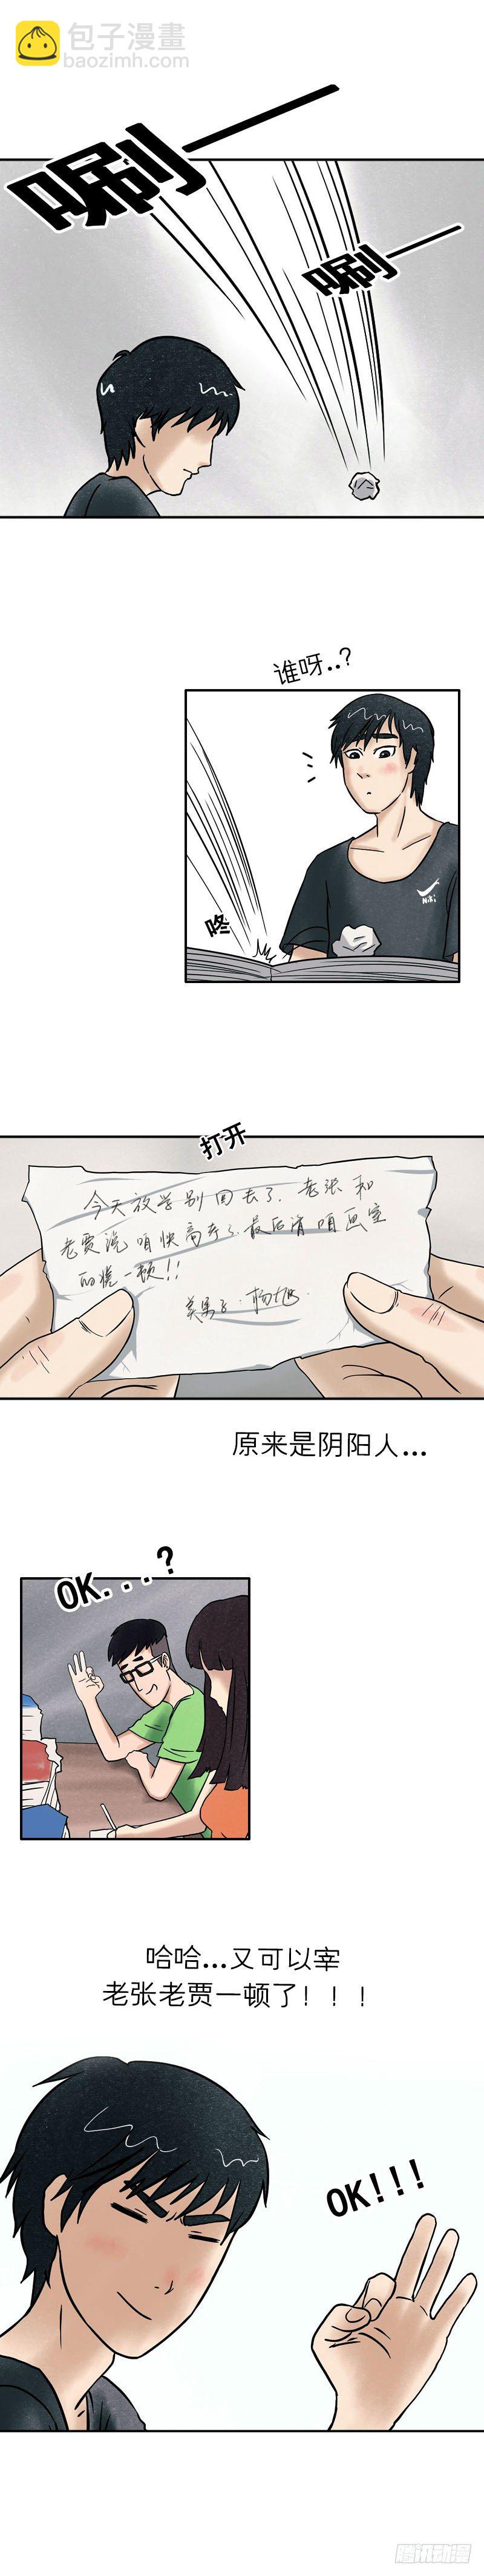 包子漫畫
baozimh.com
唰一
唰一
谁呀..?
Niki
咚
打开
今天放学别回去了.老张和
老贾说咱快高考了.最后请咱画室
的搓一顿!!
美男子.杨
原来是阴阳人...
OK...?
哈哈...又可以宰
老张老贾一顿了！！！
OK!!!
腾讯动漫